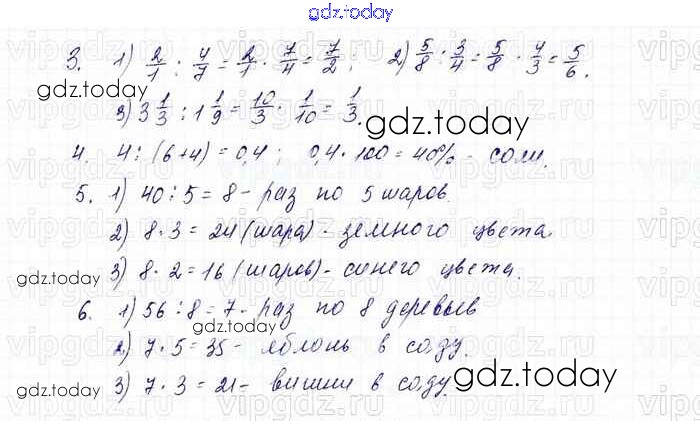 gdz.today
3. 1) 2/1 : 4/7 = 2/1 · 7/4 = 7/2; 2) 5/8 : 3/4 = 5/8 · 4/3 = 5/6.
gdz.today
3) 3 1/3 : 1 1/9 = 10/3 · 1/10 = 1/3.
gdz.today
4. 4 : (6+4) = 0,4; 0,4 · 100 = 40% - соли.
5. 1) 40 : 5 = 8 - раз по 5 шаров.
2) 8 · 3 = 24 (шара) - земного цвета
gdz.today
3) 8 · 2 = 16 (шаров) - синего цвета.
6. 1) 56 : 8 = 7 - раз по 8 деревьев
gdz.today
2) 7 · 5 = 35 - яблонь в саду.
3) 7 · 3 = 21 - вишни в саду.
gdz.today